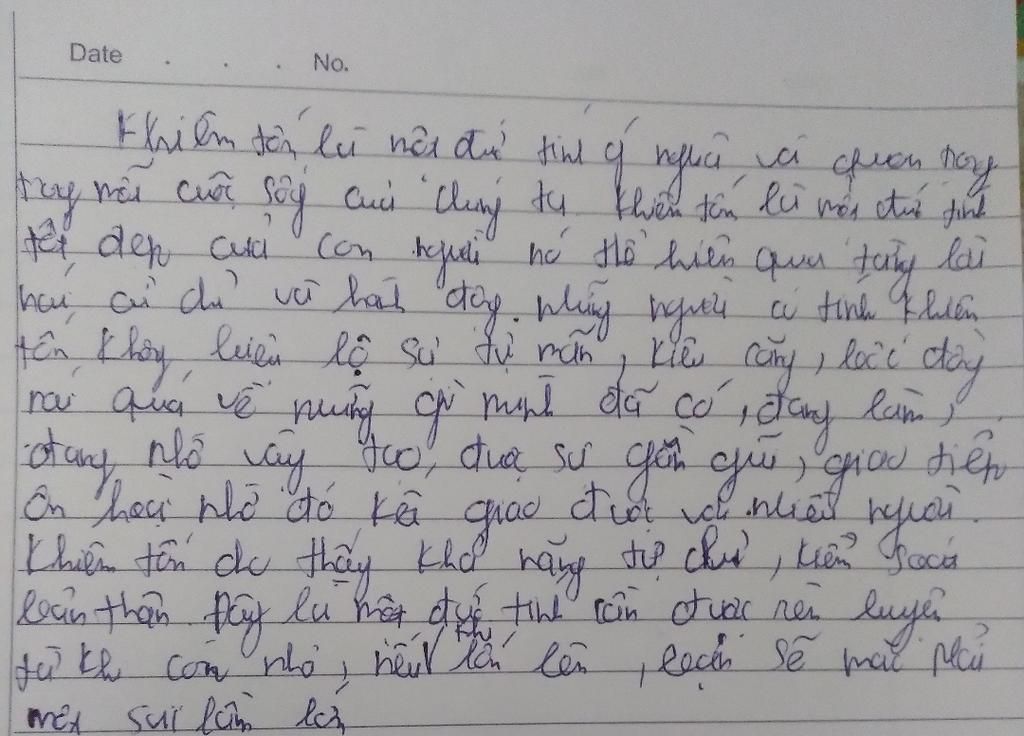 Date . . . No.
Khiêm tốn là một đức tính ý nghĩa và quan trọng
trong mỗi cuộc sống của chúng ta Khiêm tốn là một đức tính
tốt đẹp của con người nó thể hiện qua từng lời
nói, cử chỉ và hành động. những người có tính khiêm
tốn không biểu lộ sự tự mãn, kiêu căng,
nói quá về những gì mình đã có, đang làm,
đang nhờ vậy tạo, được sự gần gũi, giao tiếp
ôn hoà nhờ đó kết giao được với nhiều người.
Khiêm tốn cho thấy khả năng tự chủ, kiểm soát
bản thân Đây là một đức tính cần được rèn luyện
từ khi còn nhỏ, nếu khi lớn lên, bạn sẽ mắc phải
một sai lầm lớn